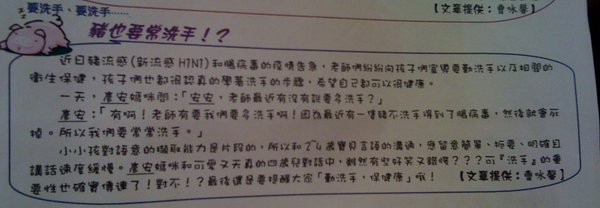 要洗手、要洗手……
【文章提供：曹咏馨】
豬也要常洗手!?
近日豬流感(新流感H1N1)和腸病毒的疫情告急，老師們紛紛向孩子們宣導要勤洗手以及相關的
衛生保健，孩子們也都很認真的學著洗手的步驟，希望自己都可以很健康。
一天，彥安媽咪問：「安安，老師最近有沒有說要多洗手？」
彥安：「有啊！老師有要我們要多洗手啊！因為最近有一隻豬不洗手得到了腸病毒，然後就害死
掉。所以我們要常常洗手。」
小小孩對語意的擷取能力是片段的，所以和2~4歲寶貝言語的溝通，應留意簡單、扼要、明確且
講話速度緩慢。彥安媽咪和可愛又天真的四歲兒對話中，雖然有些好笑又錯愕？？？可『洗手』的重
要性也確實傳達了！對不！？最後還是要提醒大家「勤洗手，保健康」哦！
【文章提供：曹咏馨】